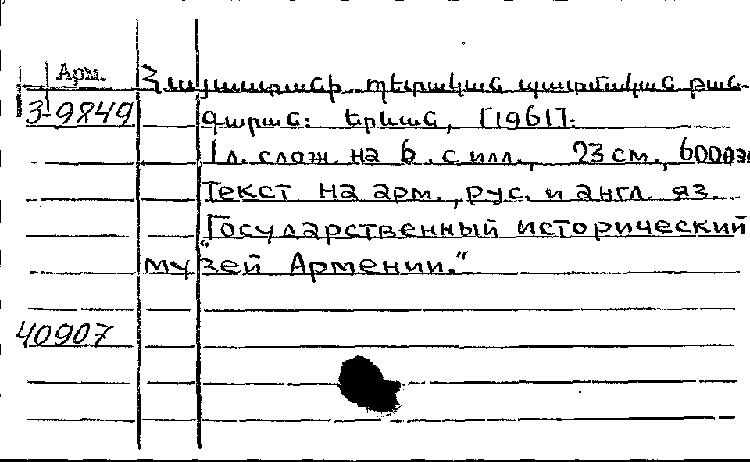 Арм.
Հայաստանի պետական պատմական թան-
3-9849
գարան: Երևան, [1961].
1 л. слож на 6 с илл., 23 см., 6000 эк
Текст на арм., рус. и англ яз.
"Государственный исторический
музей Армении."
40907